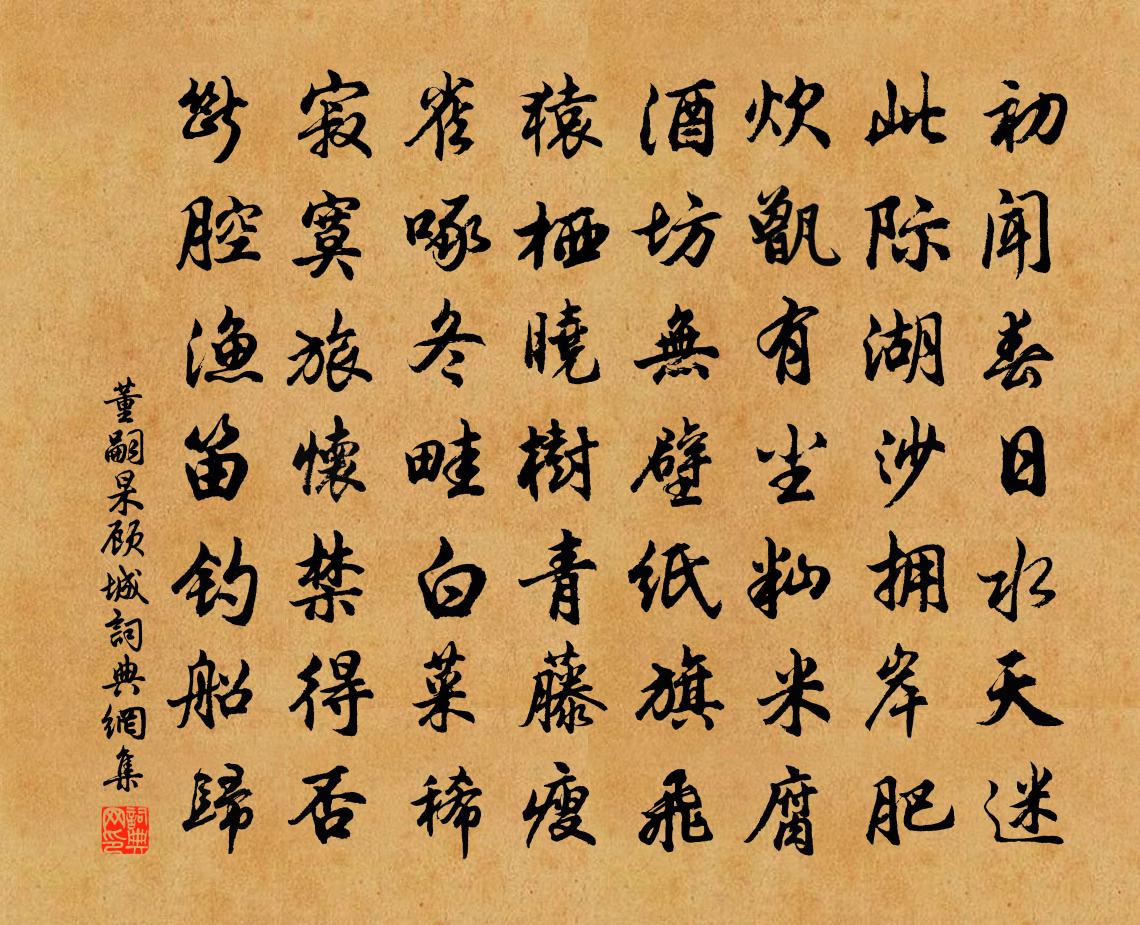 初闻春日水天迷
此际湖沙拥岸肥
炊甑有尘籼米腐
酒坊無壁纸旗飛
猿栖曉樹青藤瘦
雀啄冬畦白菜稀
寂寞旅懷禁得否
斷腔渔笛钓船歸
董嗣杲顾城詞典網集
詞典网印